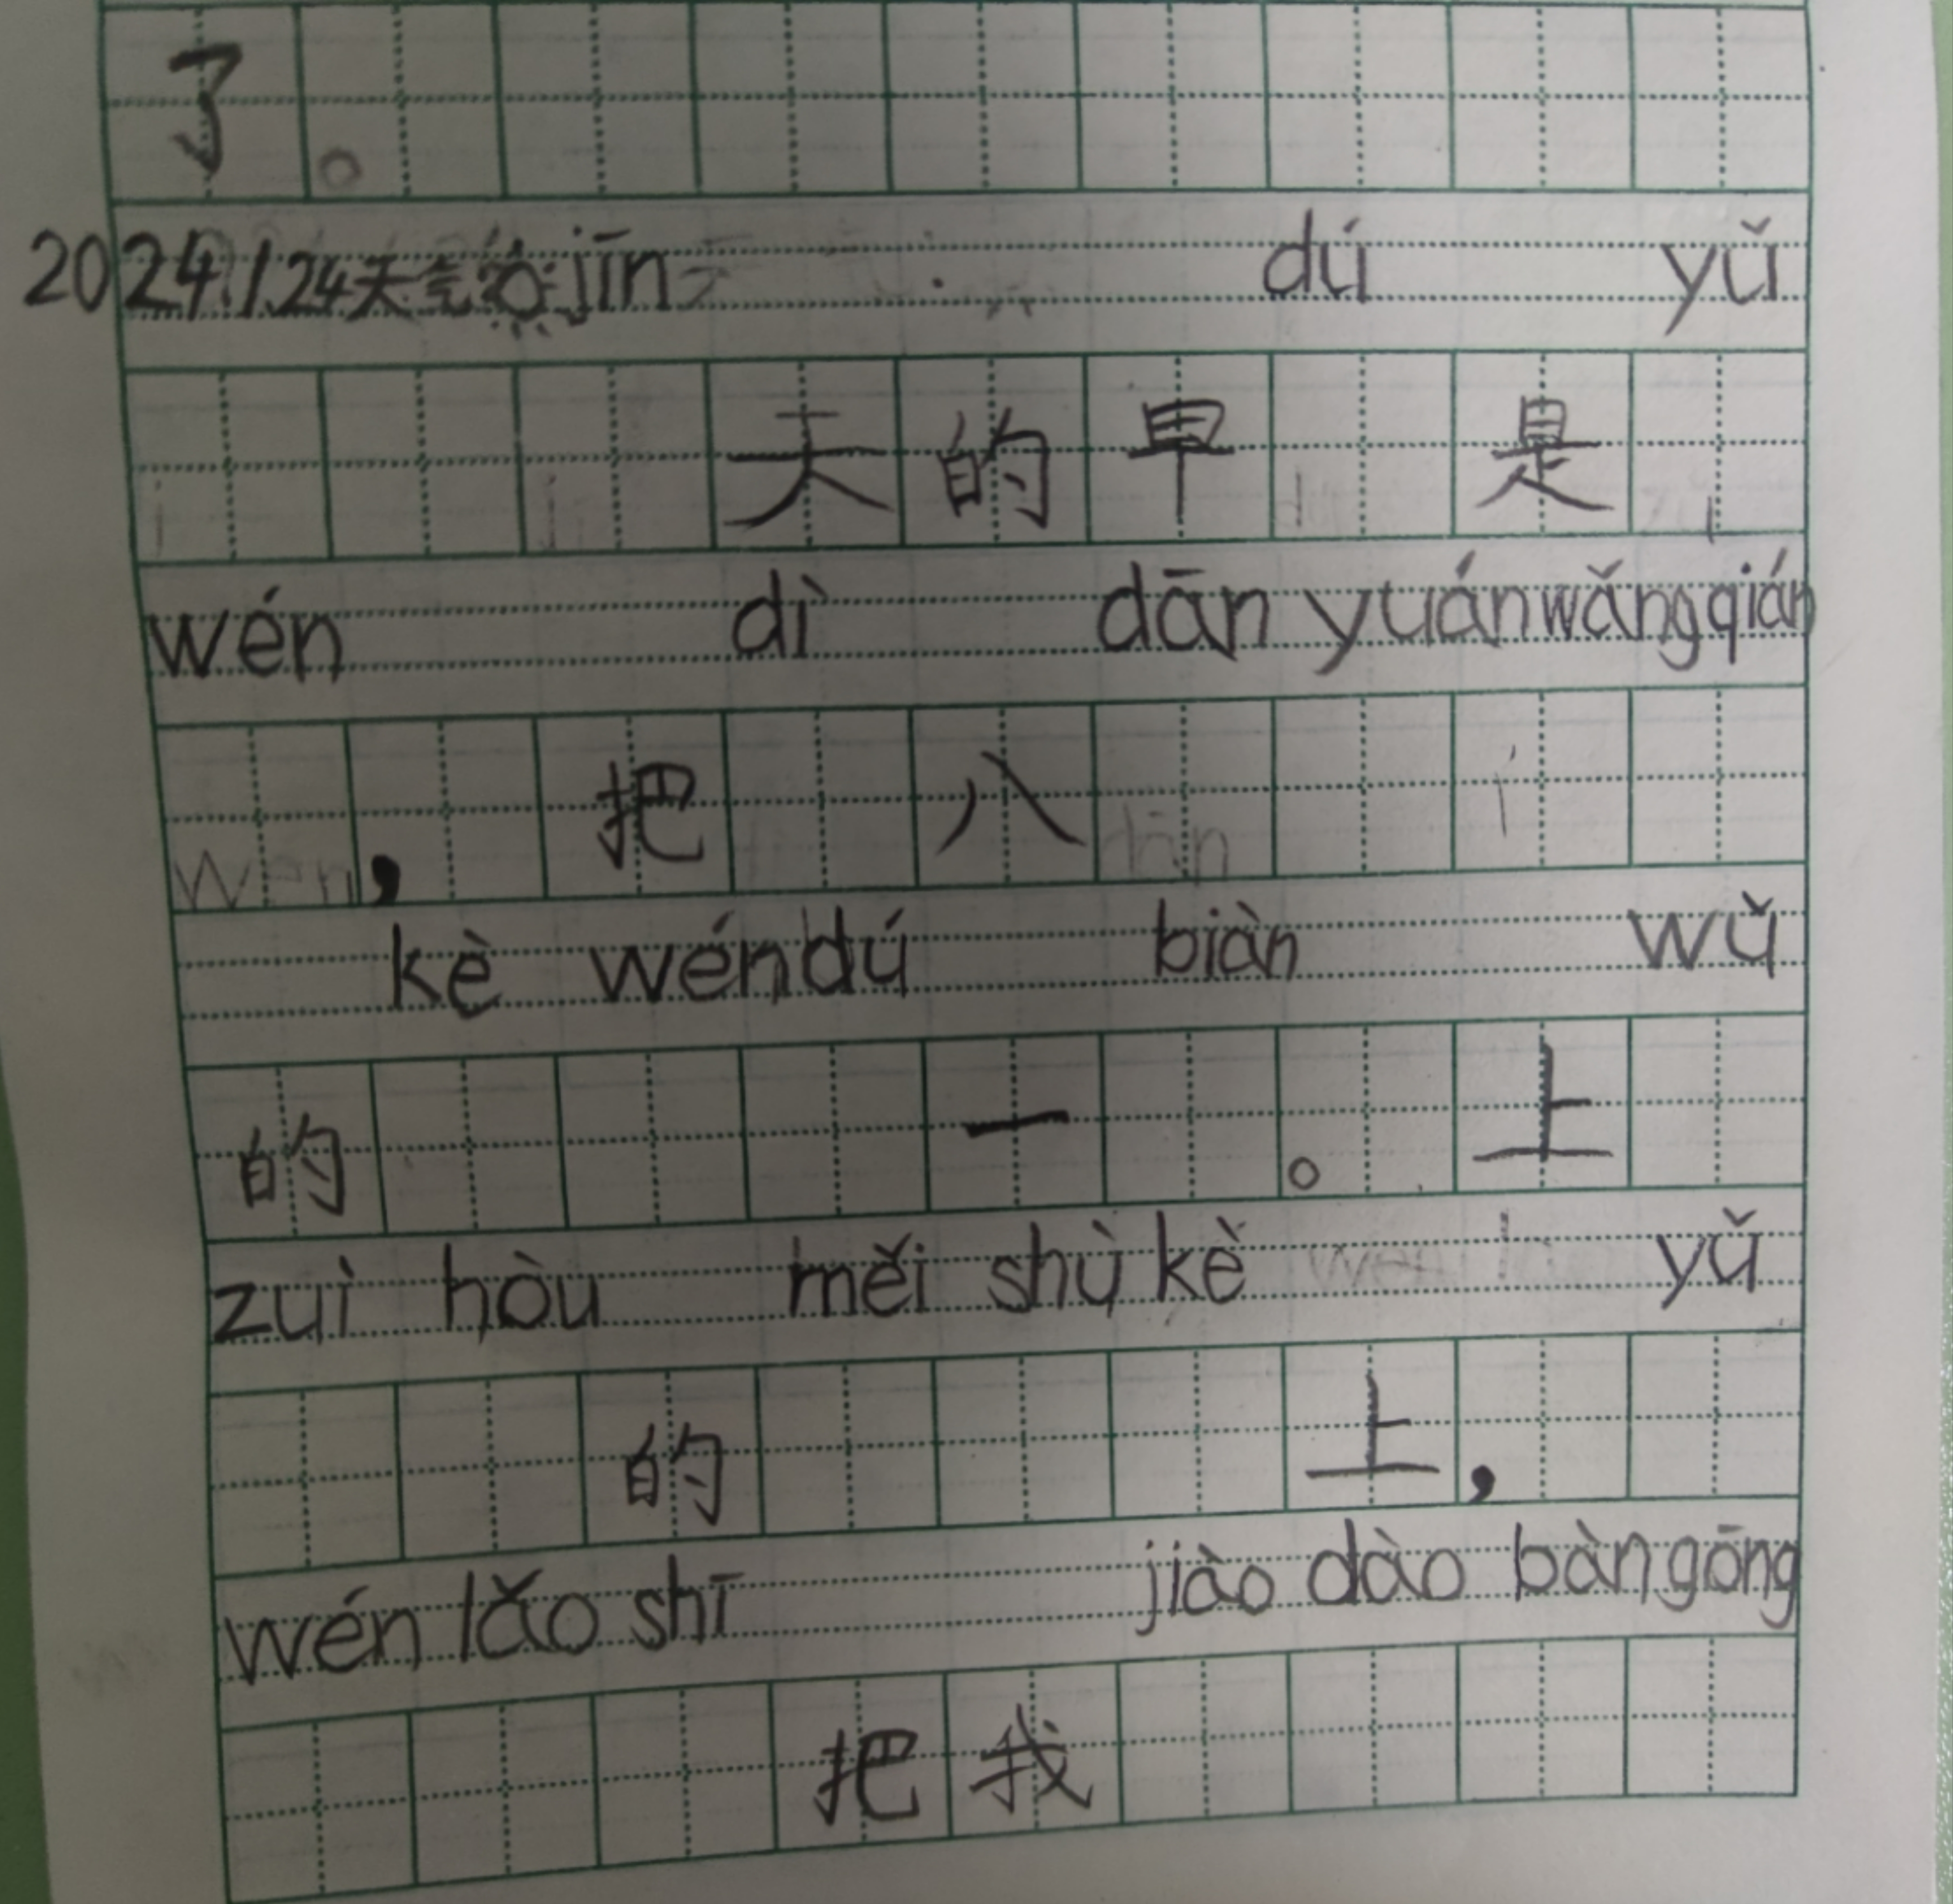 了。
2024.1.24天气 jīn dú yǔ
天的早 是
wén dì dān yuán wǎng qián
, 把 八
kè wén dú biàn wǔ
的 一 。 上
zuì hòu měi shù kè yǔ
的 上 ,
wén lǎo shī jiào dào bàn gōng
把 我